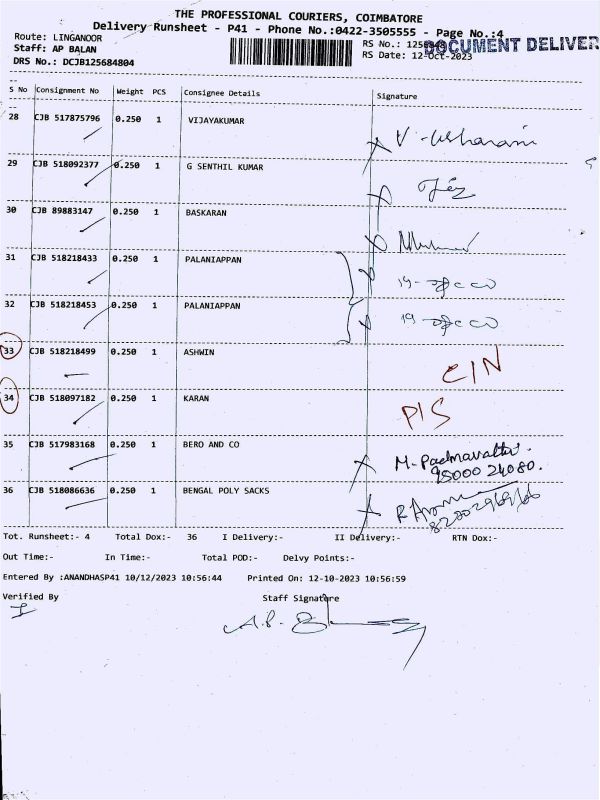 THE PROFESSIONAL COURIERS, COIMBATORE
Delivery Runsheet - P41 - Phone No.:0422-3505555 - Page No.:4
Route: LINGANOOR
RS No.:
DOCUMENT DELIVER
Staff: AP BALAN
RS Date: 12-Oct-2023
DRS No.: DCJB125684804
S No Consignment No Weight PCS Consignee Details Signature
28 CJB 517875796 0.250 1 VIJAYAKUMAR
29 CJB 518092377 0.250 1 G SENTHIL KUMAR
30 CJB 89883147 0.250 1 BASKARAN
31 CJB 518218433 0.250 1 PALANIAPPAN
32 CJB 518218453 0.250 1 PALANIAPPAN
33 CJB 518218499 0.250 1 ASHWIN
34 CJB 518097182 0.250 1 KARAN P/S
35 CJB 517983168 0.250 1 BERO AND CO M. Padmavathi.
95000 24080.
36 CJB 518086636 0.250 1 BENGAL POLY SACKS
Tot. Runsheet:- 4 Total Dox:- 36 I Delivery:- II Delivery:- RTN Dox:-
Out Time:- In Time:- Total POD:- Delvy Points:-
Entered By :ANANDHASP41 10/12/2023 10:56:44 Printed On: 12-10-2023 10:56:59
Verified By Staff Signature